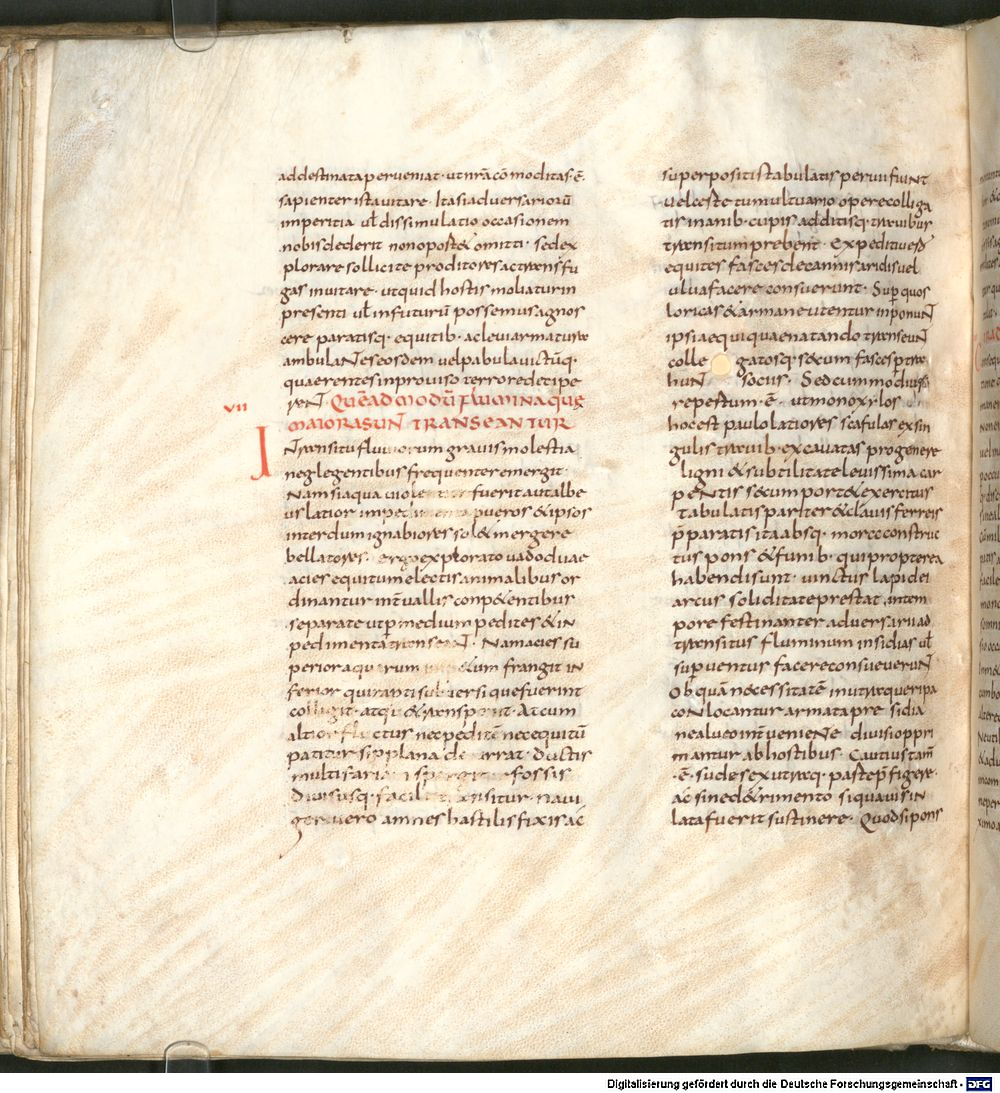 addestinata perueniat · ut nr̄a cōmoditas · ē ·
sapienter ista uitare · Ita si aduersarioru᷃
imperitia ul̄ dissimulatio occasionem
nobis dederit non opost& omitti · sed ex
plorare sollicite proditores ac transfu
gas inuitare · ut quid hostis moliatur in
presenti ul̄ in futurū possemus agnos
cere paratisq · equitib · ac leui armaturae
ambulantes eosdem uel pabula uictūq ·
quaerentes inprouiso terrore decipe
rent · Quēadmodū flumina que
vii
maiora sunt transeantur
In transitu fluuiorum grauis molestia
neglegentibus frequenter emergit ·
Nam si aqua uiole fuerit aut albe
us latior impedimenta pueros & ipsos
interdum ignabiores sol& mergere
bellatores · ergo explorato uado duae
acies equitum electis animalibus or
dinantur int̄uallis conp&entibus
separate ut p medium pedites & in
pedimenta transeant · Nam acies su
perior aquarum um frangit in
ferior qui ranti subuersique fuerint
colligit · atque & transponit · At cum
altior fluctus nec peditē nec equitū
patitur si p plana decurrat · ductis
multifariam spargitur fossis
diuisusq · facile transitur · naui
geri uero amnes hastilis fixis ac
superpositis tabulatis peruii fiunt
uel certe tumultuario opere colliga
tis inanib · cupis additisq · trauibus
transitum prebent · Expediti uero
equites fasces de cannis aridis uel
ulua facere consuerunt · Sup quos
loricas & arma ne utentur inponunt
ipsi aequi quae natando transeunt
colle gatosq · secum fasces ptra
hunt socus · Sed cummodius
repertum · ē · ut monoxylos
hoc est paulo latiores scafulos ex sin
gulis trauib · excauatas pro genere
ligni & subtilitate leuissima car
pentis secum port& exercitus
tabulatis pariter & clauis ferreis
p̄paratis ita absq · more construc
tus pons & funib · qui propterea
habendi sunt · uinctus lapidei
arcus soliditate prestat , intem
pore festinanter aduersarii ad
transitus fluminum insidias ul̄
supuentus facere consueuerunt
Ob quā necessitatē in utraque ripa
conlocantur armata pre sidia
ne alueo int̄ueniente diuisi oppri
mantur ab hostibus · Cautius tam̄
· ē · sudes ex utraq · paste p̄figere ·
ac sine d&rimento si qua uis in
lata fuerit sustinere · Quod si pons
Digitalisierung gefördert durch die Deutsche Forschungsgemeinschaft · DFG